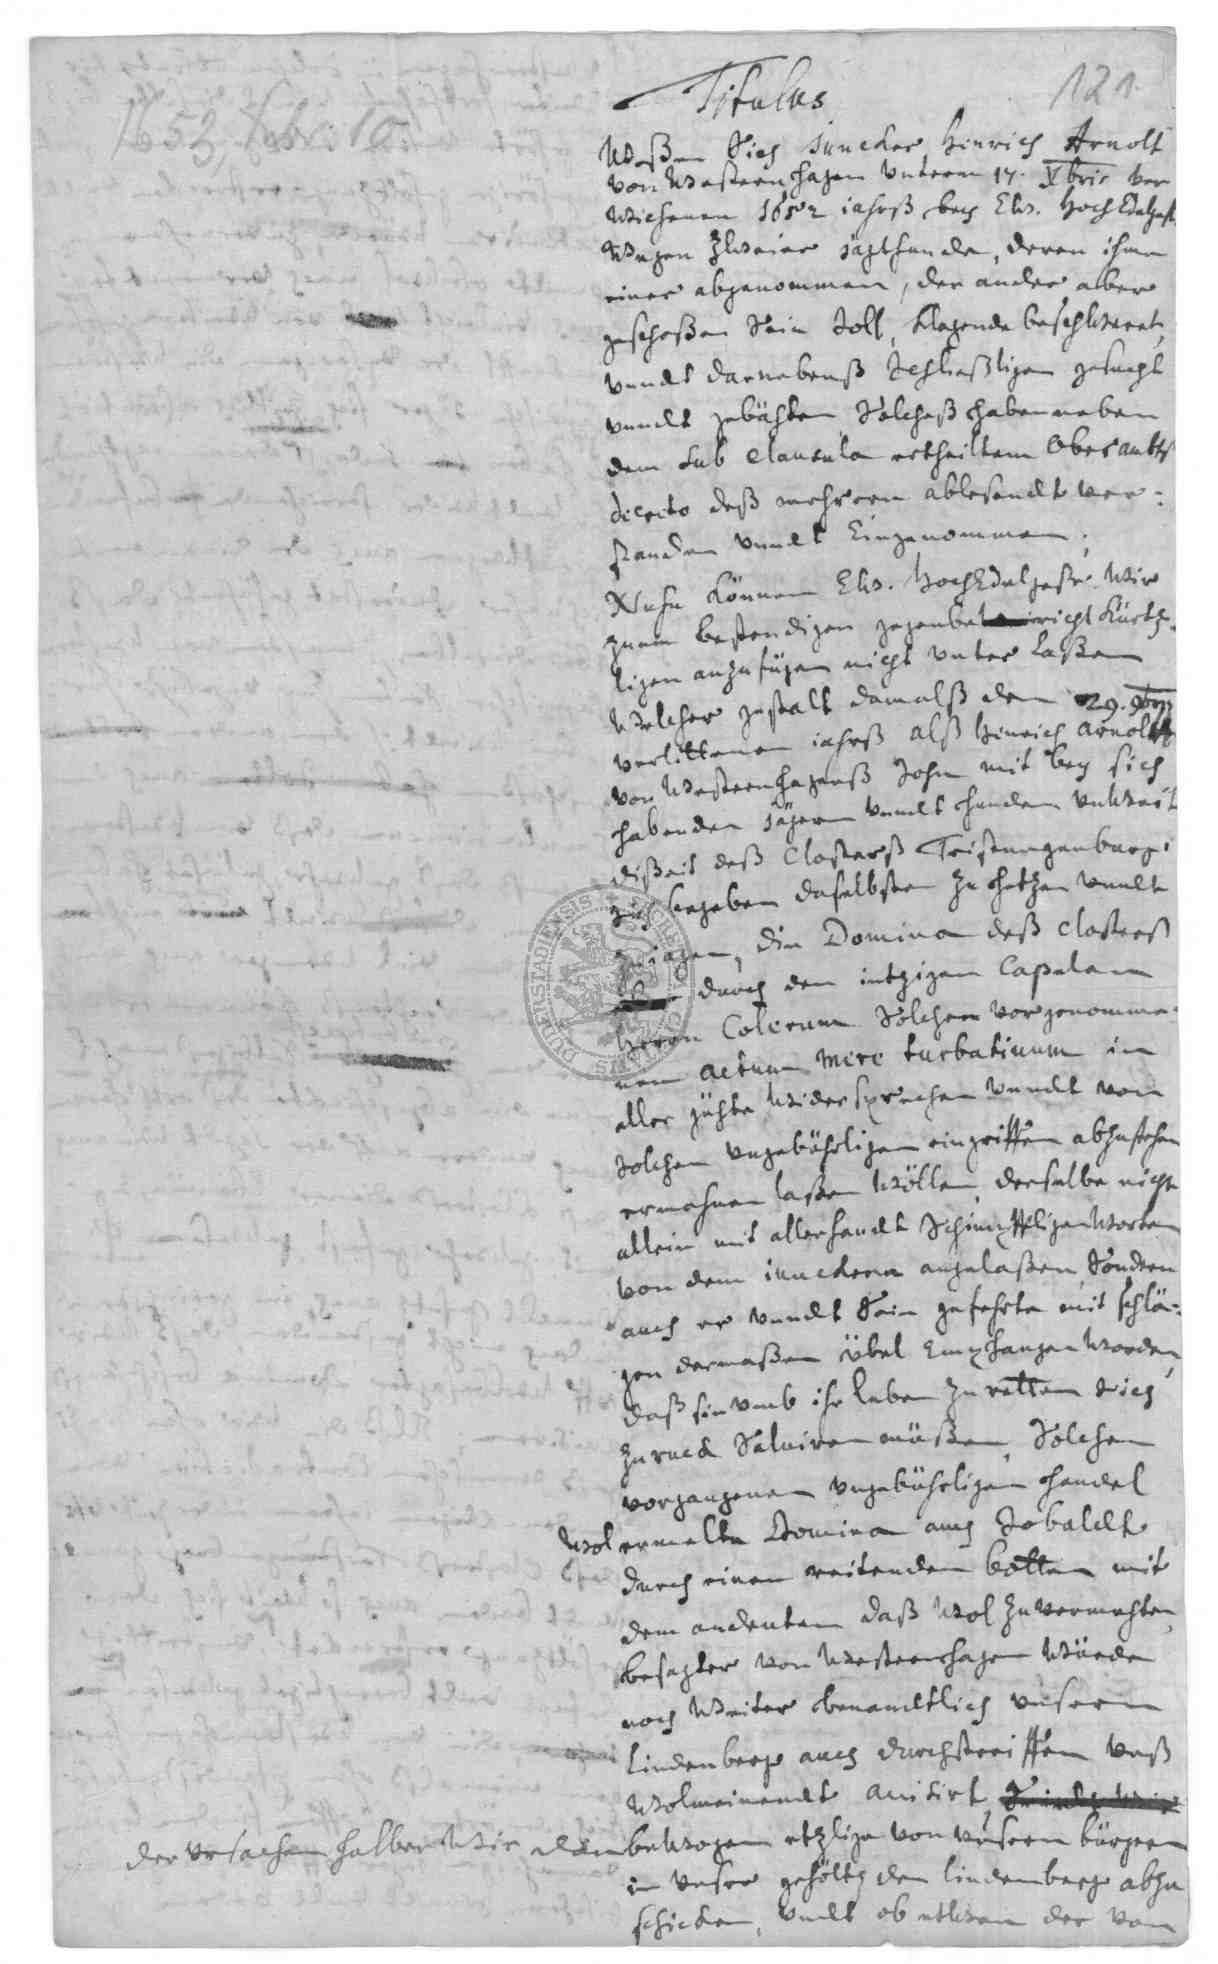 1653, Febr: 10.
121.
Titulus
Waßen Sich Juncker Hinrich Arnolt
von Westernhagen Unterm 17. Xbris ver
wichenen 1652 iahrß bey Ew. HochEdelgest.
wegen zweier jagthunde, deren ihme
einer abgenommen, der ander aber
geschoßen Sein Soll, klagende beschweret,
vnndt darnebenß Schließligen gesucht
vnndt gebähten, Solcheß haben neben
dem sub clausula ertheiltem Oberambts
decreto deß mehrern ablesendt ver-
standen vnndt Eingenommen.
Nuhn können Ew. HochEdelgestr. wir
zuem bestendigen gegenbericht kürtz-
ligen anzufügen nicht unter laßen
welcher gestalt damalß den 29. 9bris
verlittenen iahrß alß Hinrich Arnoltt
von Westernhagenß Sohn mit bey sich
habenden jägern vnndt hunden vnweit
dißeit deß Closterß Teistungenburg
begeben daselbsten zu hetzen vnndt
zu iagen, die Domina deß Closterß
durch den intzigen Capelan
Herrn Colerum Solchen vorgenomme-
nen actum mere turbatiuum in
aller gühte widersprechen vnndt von
Solchen vngebührligen eingriffen abzustehen
ermahnen laßen wöllen, derselbe nicht
allein mit allerhandt Schimpffligen worten
von dem iunckern angelaßen, Sondern
auch er vnndt Sein gefehrte mit schlä-
gen dermaßen übel Empfangen worden,
daß sie vmb ihr leben zu retten Sich
zuruck Salviren müßen, Solchen
vorgangenen vngebührligen handel
wol ermelte Domina auch Sobaldt
durch einen reitenden botten mit
dem andeuten daß wol zuvermuhten,
besagter von Westernhagen würde
noch weiter benandtlich vnsern
lindenberg auch durchstreiffen vnß
wolmeinendt avisirt,
der vrsachen halber wir den bewogen etzlige von vnsern bürgern
in vnser gehöltz den lindenberg abzu
schicken, vndt ob etwan der von